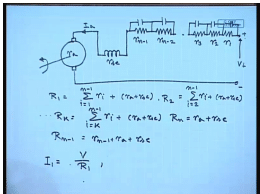 I₁ₐ
rₐ
r_se
r_{n-1} r_{n-2} r₃ r₂ r₁
+
V_L
-
R₁ = Σ_{i=1}^{n-1} rᵢ + (rₐ+r_se). R₂ = Σ_{i=2}^{n-1} rᵢ + (rₐ+r_se)
·· R_K = Σ_{i=K}^{n-1} rᵢ + (rₐ+r_se) R_n = rₐ+r_se
R_{n-1} = r_{n-1}+rₐ+r_se
I₁ = V/R₁ ,